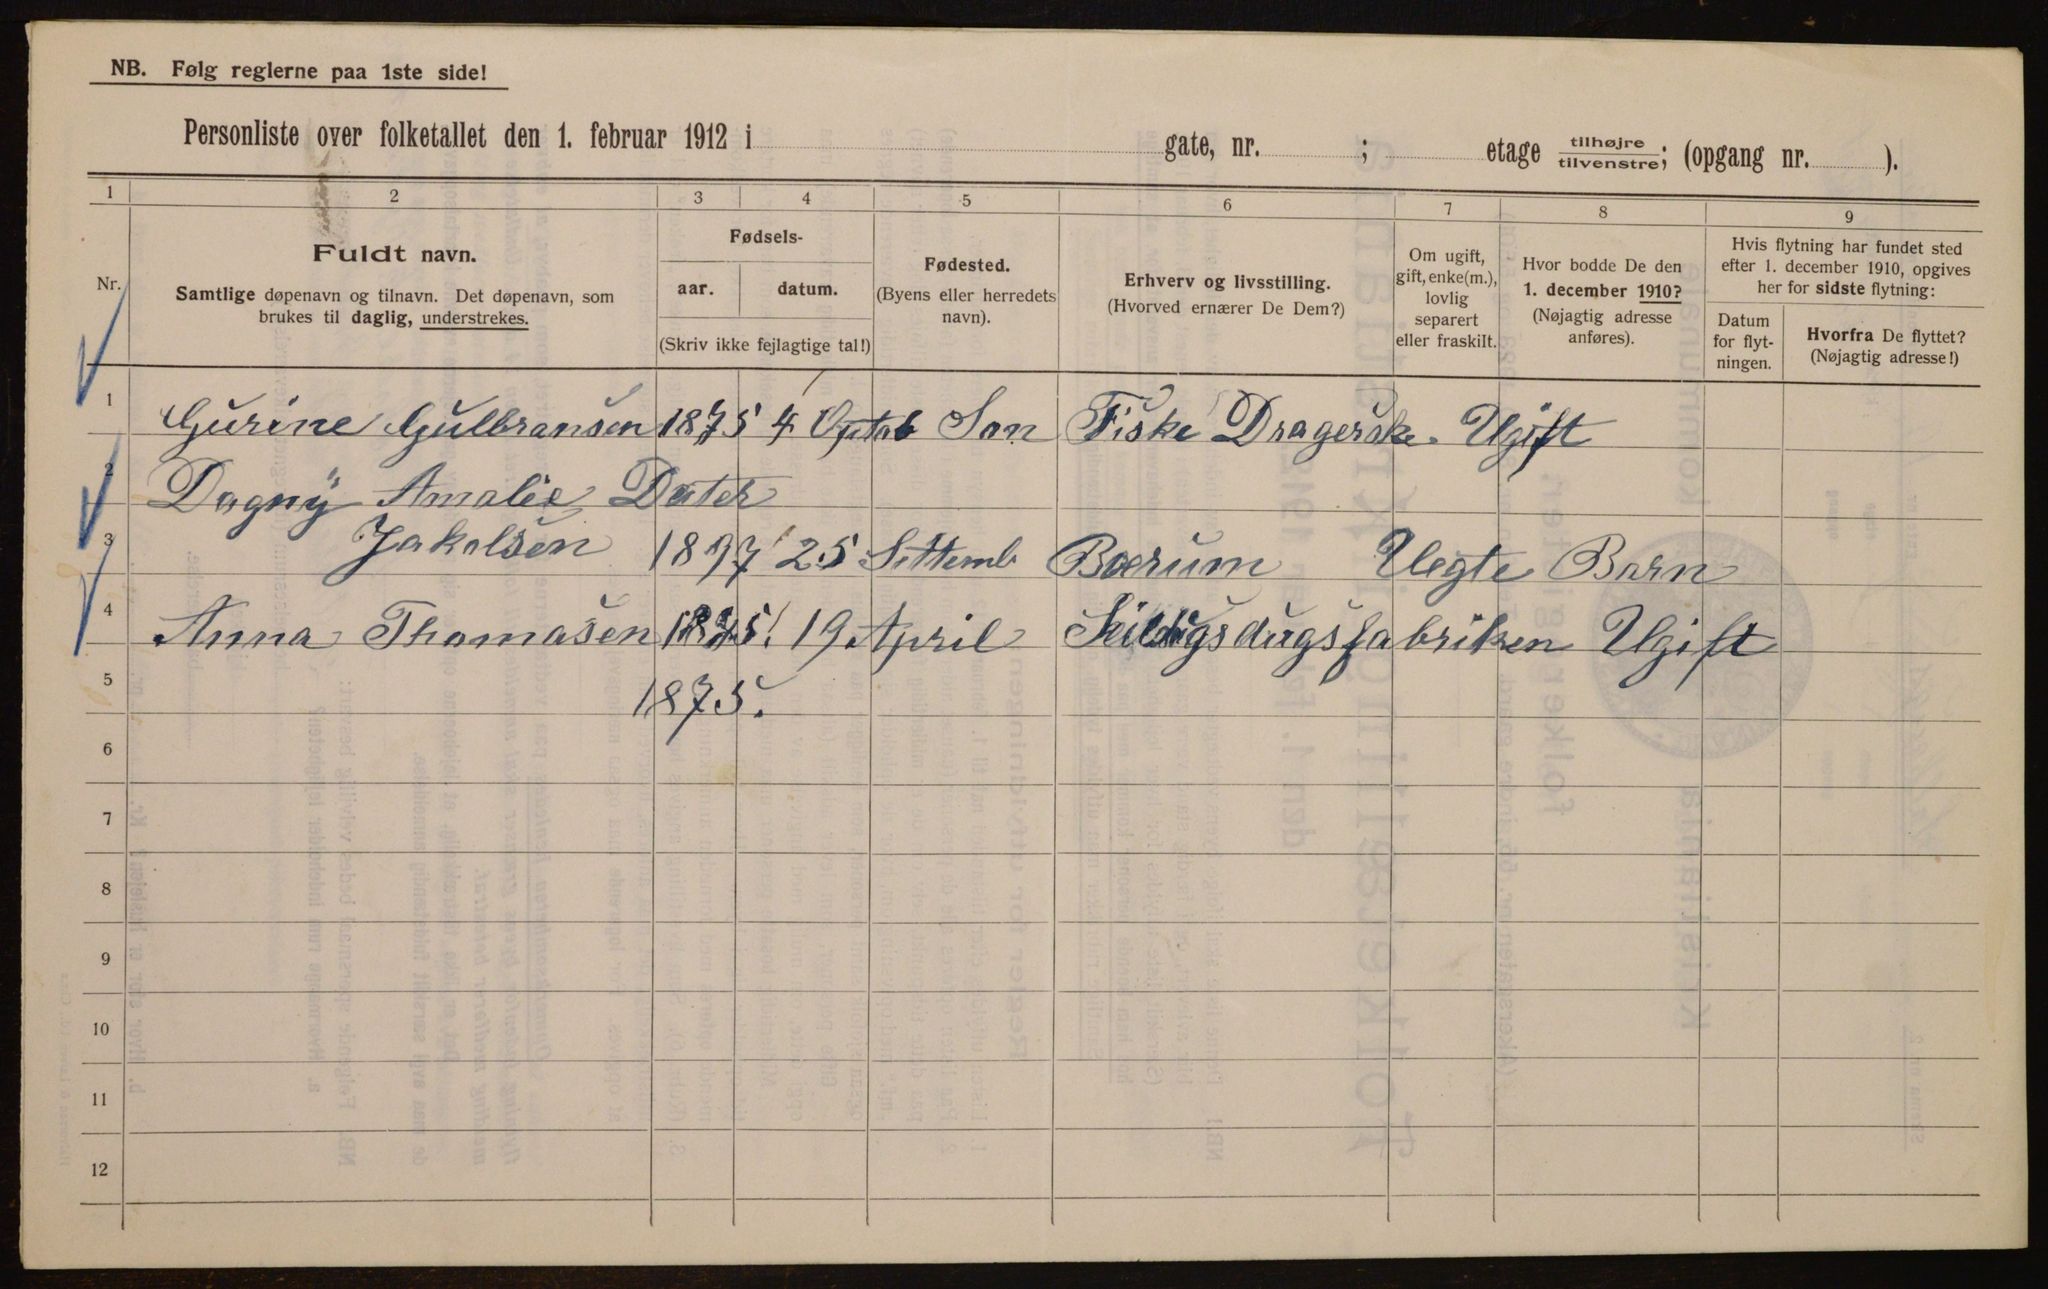 NB. Følg reglerne paa 1ste side!
Personliste over folketallet den 1. februar 1912 i gate, nr. ; etage tilhøjre/tilvenstre; (opgang nr. ).
1 2 3 4 5 6 7 8 9
Nr.
Fuldt navn.
Samtlige døpenavn og tilnavn. Det døpenavn, som
brukes til daglig, understrekes.
Fødsels-
aar. datum.
(Skriv ikke fejlagtige tal!)
Fødested.
(Byens eller herredets
navn).
Erhverv og livsstilling.
(Hvorved ernærer De Dem?)
Om ugift,
gift, enke(m.),
lovlig
separert
eller fraskilt.
Hvor bodde De den
1. december 1910?
(Nøjagtig adresse
anføres).
Hvis flytning har fundet sted
efter 1. december 1910, opgives
her for sidste flytning:
Datum
for flyt-
ningen.
Hvorfra De flyttet?
(Nøjagtig adresse!)
1 Gurine Gulbransen 1875 4 Son Fiske Dragerske. Ugift
2 Dagny Amalie Dater
3 Jakolsen 1897 25 Sittemb Boerum Uegte Barn
4 Anna Thomasen 1875. 19 April Ugift
5 1875.
6
7
8
9
10
11
12